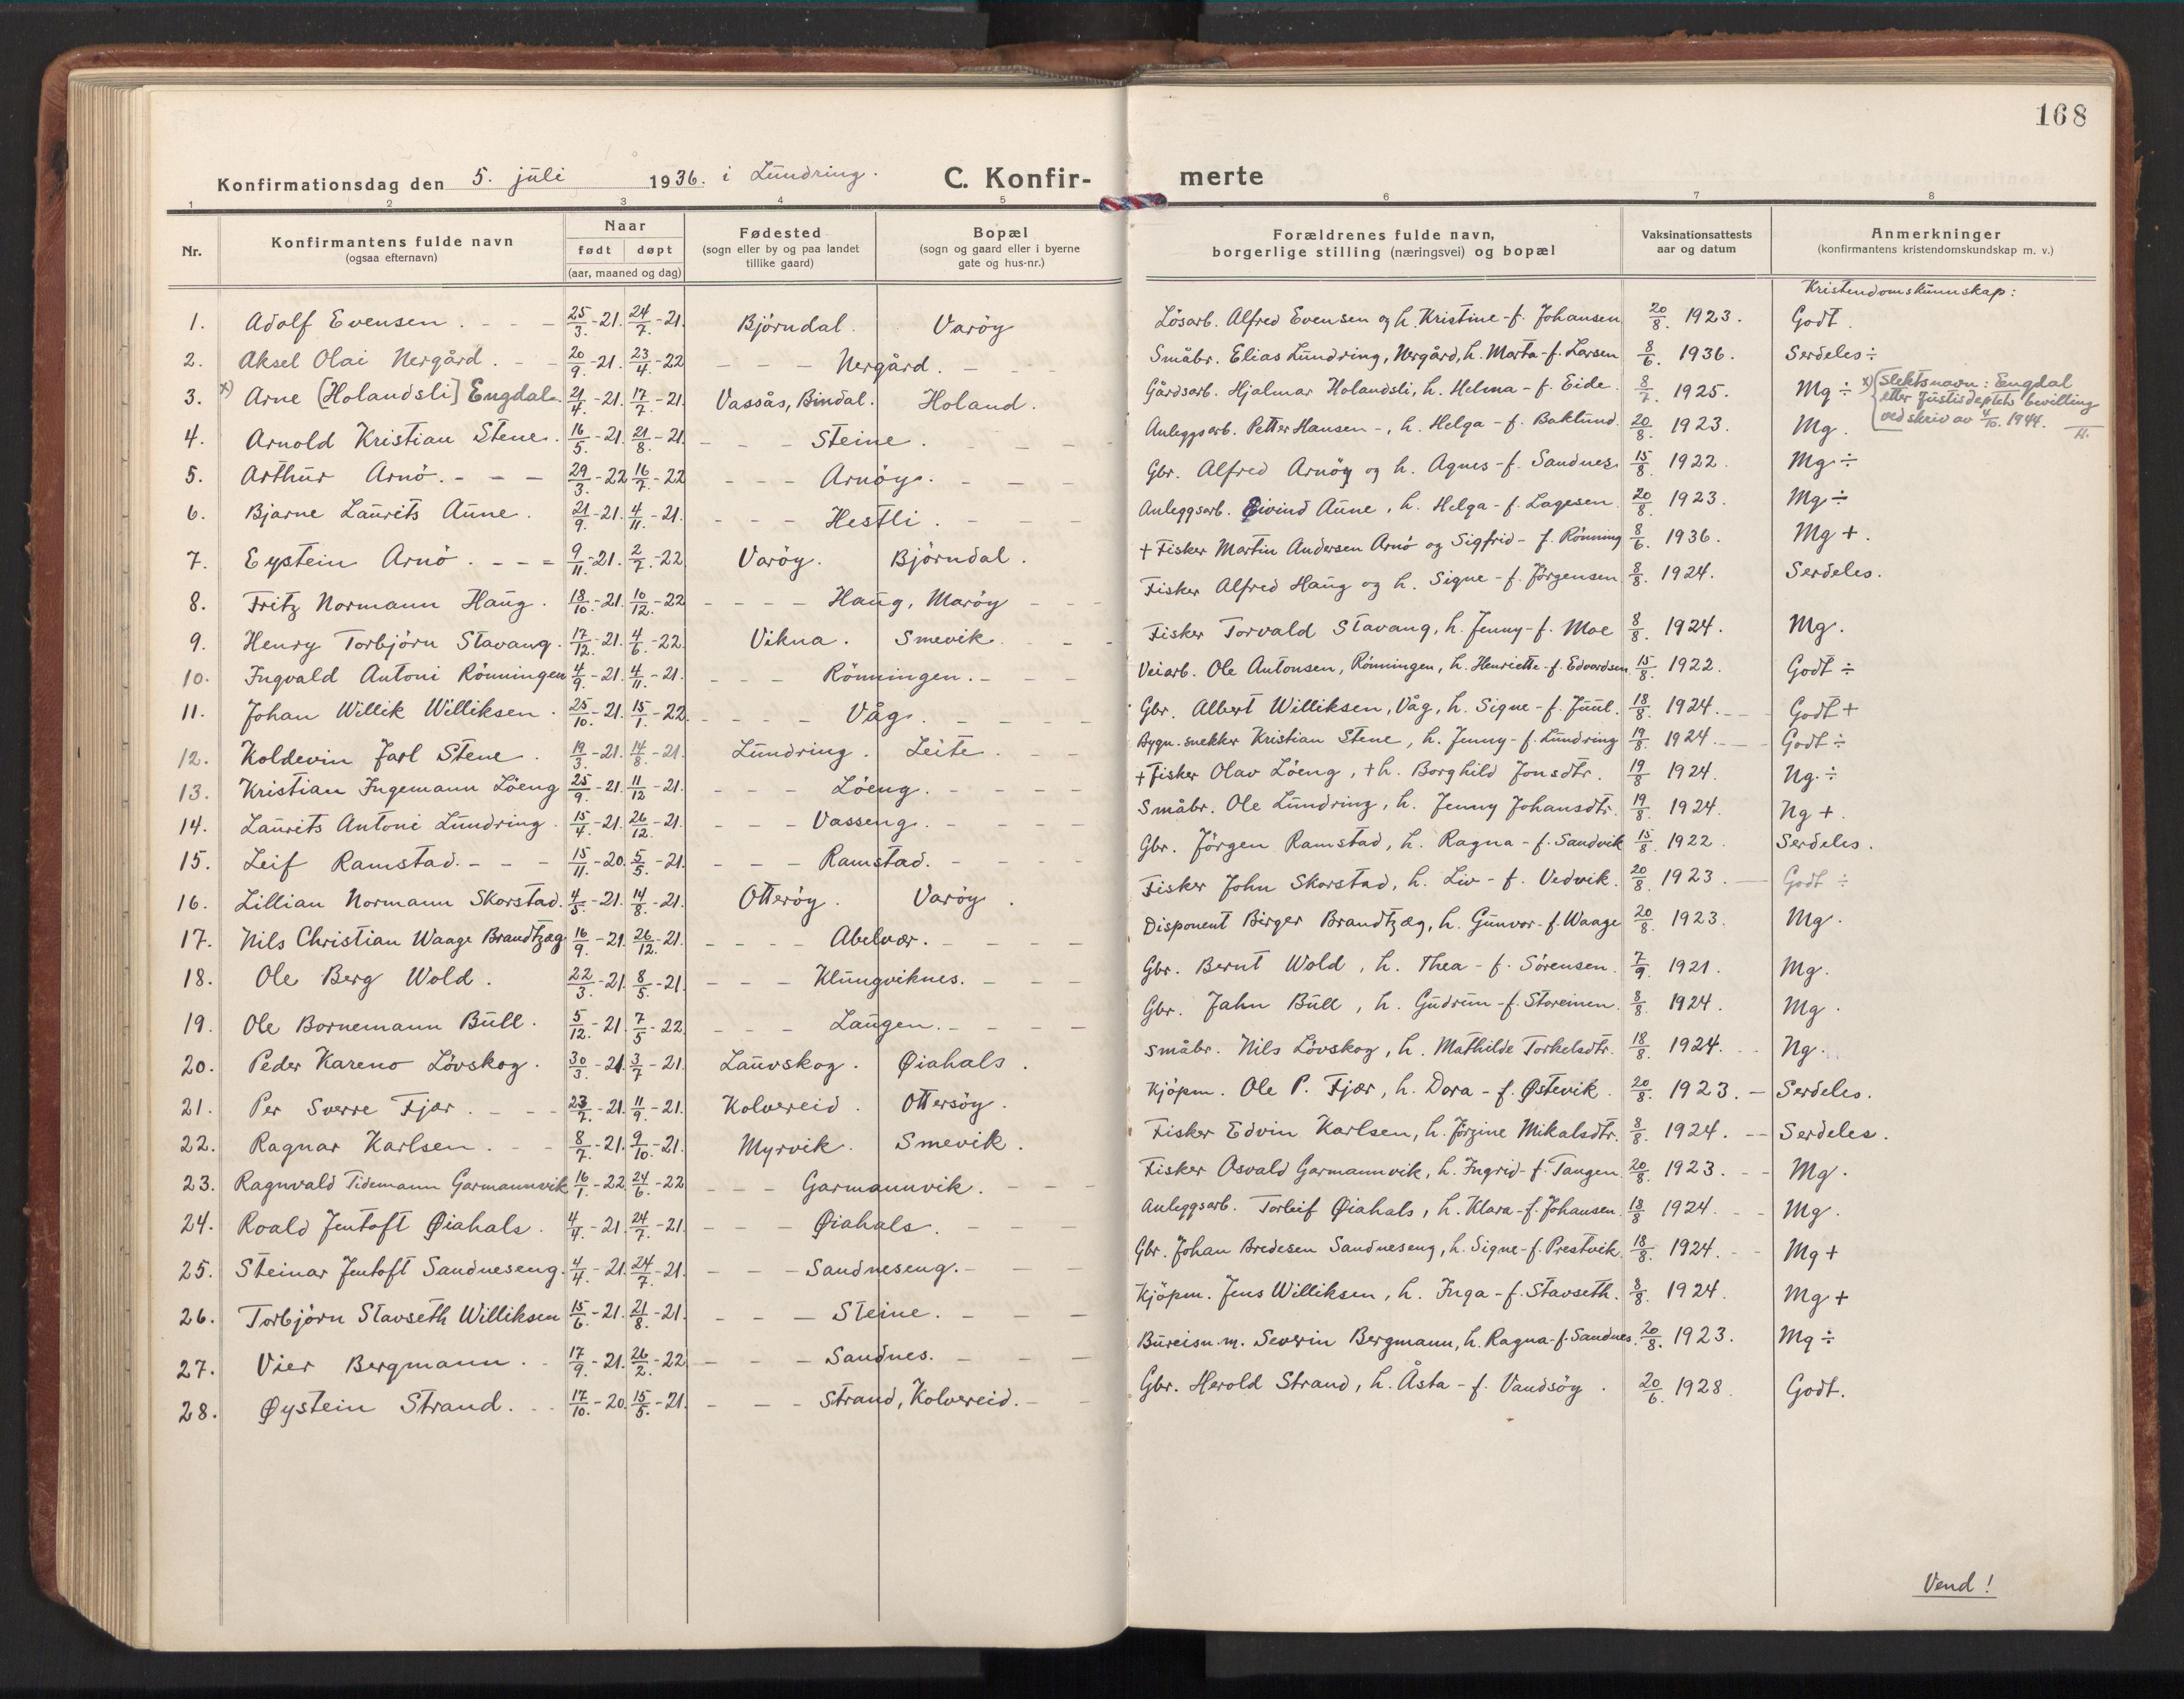 168
Konfirmationsdag den 5. juli 1936. i Lundring. C. Konfir- merte
1 2 3 4 5 6 7 8
Nr. | Konfirmantens fulde navn (ogsaa efternavn) | Naar født døpt (aar, maaned og dag) | Fødested (sogn eller by og paa landet tillike gaard) | Bopæl (sogn og gaard eller i byerne gate og hus-nr.) | Forældrenes fulde navn, borgerlige stilling (næringsvei) og bopæl | Vaksinationsattests aar og datum | Anmerkninger (konfirmantens kristendomskundskap m. v.)
Kristendomskunnskap:
1. Adolf Evensen. - - - 25/3.-21. 24/7.-21. Bjørndal. Varøy Løsarb. Alfred Evensen og h. Kristine - f. Johansen 20/8. 1923. Godt.
2. Aksel Olai Nergård. - - 20/9.-21. 23/4.-22 - - - Nergård. - Småbr. Elias Lundring, Nergård, h. Marta - f. Larsen 8/6. 1936. Serdeles ÷
3. x) Arne [Holandsli] Engdal. 21/4.-21. 17/7.-21 Vassås, Bindal. Holand. Gårdsarb. Hjalmar Holandsli, h. Helma - f. Eide. 8/7. 1925. Mg ÷ x) Slektsnavn: Engdal etter Justisdeptets bevilling ved skriv av 4/10. 1944. H.
4. Arnold Kristian Stene. 16/5.-21. 21/8.-21. - - - Steine. - - Anleggsarb. Petter Hansen -, h. Helga - f. Baklund. 20/8. 1923. Mg.
5. Arthur Arnø. - - - 29/3.-22 16/7.-22 - - - Arnøy. - - - Gbr. Alfred Arnøy og h. Agnes - f. Sandnes 15/8. 1922. Mg ÷
6. Bjarne Laurits Aune. 21/9.-21. 4/11.-21. - - - Hestli. - - - Anleggsarb. Eivind Aune, h. Helga - f. Lagesen. 20/8. 1923. Mg ÷
7. Eystein Arnø. - - - 9/11.-21. 2/7.-22 Varøy. Bjørndal. + Fisker Martin Andersen Arnø og Sigfrid - f. Rønning 8/6. 1936. Mg +.
8. Fritz Normann Haug. 18/10.-21. 10/12.-22 - - - - Haug, Marøy - - - Fisker Alfred Haug og h. Signe - f. Jørgensen 8/8. 1924. Serdeles.
9. Henry Torbjørn Stavang. 17/12.-21. 4/6.-22. Vikna. Smevik. - - Fisker Torvald Stavang, h. Jenny - f. Moe 8/8. 1924. Mg.
10. Ingvald Antoni Rønningen 4/9.-21. 4/11.-21. - - - Rønningen. - - - Veiarb. Ole Antonsen, Rønningen, h. Henriette - f. Edvardsen 15/8. 1922. Godt ÷
11. Johan Willik Williksen. 25/10.-21. 15/1.-22. - - - Våg. - - - - Gbr. Albert Williksen, Våg, h. Signe - f. Juul. 18/8. 1924. - - - Godt +
12. Koldevin Jarl Stene. 19/3.-21. 14/8.-21. Lundring. Leite. - - Bygn. snekker Kristian Stene, h. Jenny - f. Lundring 19/8. 1924. - - - Godt ÷
13. Kristian Ingemann Løeng 25/9.-21. 11/12-21. - - - Løeng. - - - - + Fisker Olav Løeng, + h. Borghild Jonsdtr. 19/8 1924. Ng. ÷
14. Laurits Antoni Lundring. 15/4.-21. 26/12.-21. - - - Vasseng. - - - - Småbr. Ole Lundring, h. Jenny Johansdtr. 19/8. 1924. Ng +.
15. Leif Ramstad. - - - 15/11.-20. 5/5.-21. - - - Ramstad. - - - - Gbr. Jørgen Ramstad, h. Ragna - f. Sandvik 15/8. 1922. Serdeles.
16. Lillian Normann Skorstad. 4/5.-21. 14/8.-21. Otterøy. Varøy. Fisker John Skorstad, h. Liv - f. Vedvik. 20/8. 1923. - Godt ÷
17. Nils Christian Waage Brandtzæg 16/9.-21. 26/12.-21. - - - - Abelvær. - - - - Disponent Birger Brandtzæg, h. Gunvor - f. Waage 20/8. 1923. Mg.
18. Ole Berg Wold. 22/3.-21. 8/5.-21. - - - Klungviknes. - - - Gbr. Bernt Wold, h. Thea - f. Sørensen. 7/9. 1921. Mg.
19. Ole Bornemann Bull. 5/12.-21. 7/5-22. - - - Laugen. - - - - Gbr. Jahn Bull, h. Gudrun - f. Storeinen. 8/8. 1924. Mg.
20. Peder Kareno Løvskog. 30/3.-21 3/7-21. Lauvskog. Øiahals. Småbr. Nils Løvskog, h. Mathilde Torkelsdtr. 18/8. 1924. - - Ng.
21. Per Sverre Fjær. - - - 23/7.-21. 11/9.-21. Kolvereid. Ottersøy. Kjøpm. Ole P. Fjær, h. Dora - f. Østevik. 20/8. 1923. - Serdeles.
22. Ragnar Karlsen. - - 8/7.-21. 9/10.-21. Myrvik. Smevik. Fisker Edvin Karlsen, h. Jørgine Mikalsdtr. 8/8. 1924. - - Serdeles.
23. Ragnvald Tidemann Garmannvik 16/1.-22. 24/6.-22 - - - Garmannvik. - - - Fisker Osvald Garmannvik, h. Ingrid - f. Tangen. 20/8. 1923. - - Mg.
24. Roald Jentoft Øiahals. 4/4.-21. 24/7.-21. - - - Øiahals. - - - - Anleggsarb. Torleif Øiahals, h. Klara - f. Johansen. 18/8 1924. - - Mg.
25. Steinar Jentoft Sandneseng. 4/4.-21. 24/7.-21. - - - Sandneseng. - - - Gbr. Johan Bredesen Sandneseng, h. Signe - f. Prestvik. 18/8. 1924. - - Mg +
26. Torbjørn Stavseth Williksen 15/6.-21. 21/8.-21. - - - Steine. - - - Kjøpm. Jens Williksen, h. Inga - f. Stavseth. 8/8. 1924. Mg +
27. Vier Bergmann. - 17/9.-21. 26/2.-22 - - - Sandnes. - - - - Bureisn.m. Severin Bergmann, h. Ragna - f. Sandnes. 20/8. 1923. Mg ÷
28. Øystein Strand. - - 17/10.-20. 15/5.-21. - - - Strand, Kolvereid. - - Gbr. Herold Strand, h. Åsta - f. Vandsøy. 20/6. 1928. Godt.
Vend!